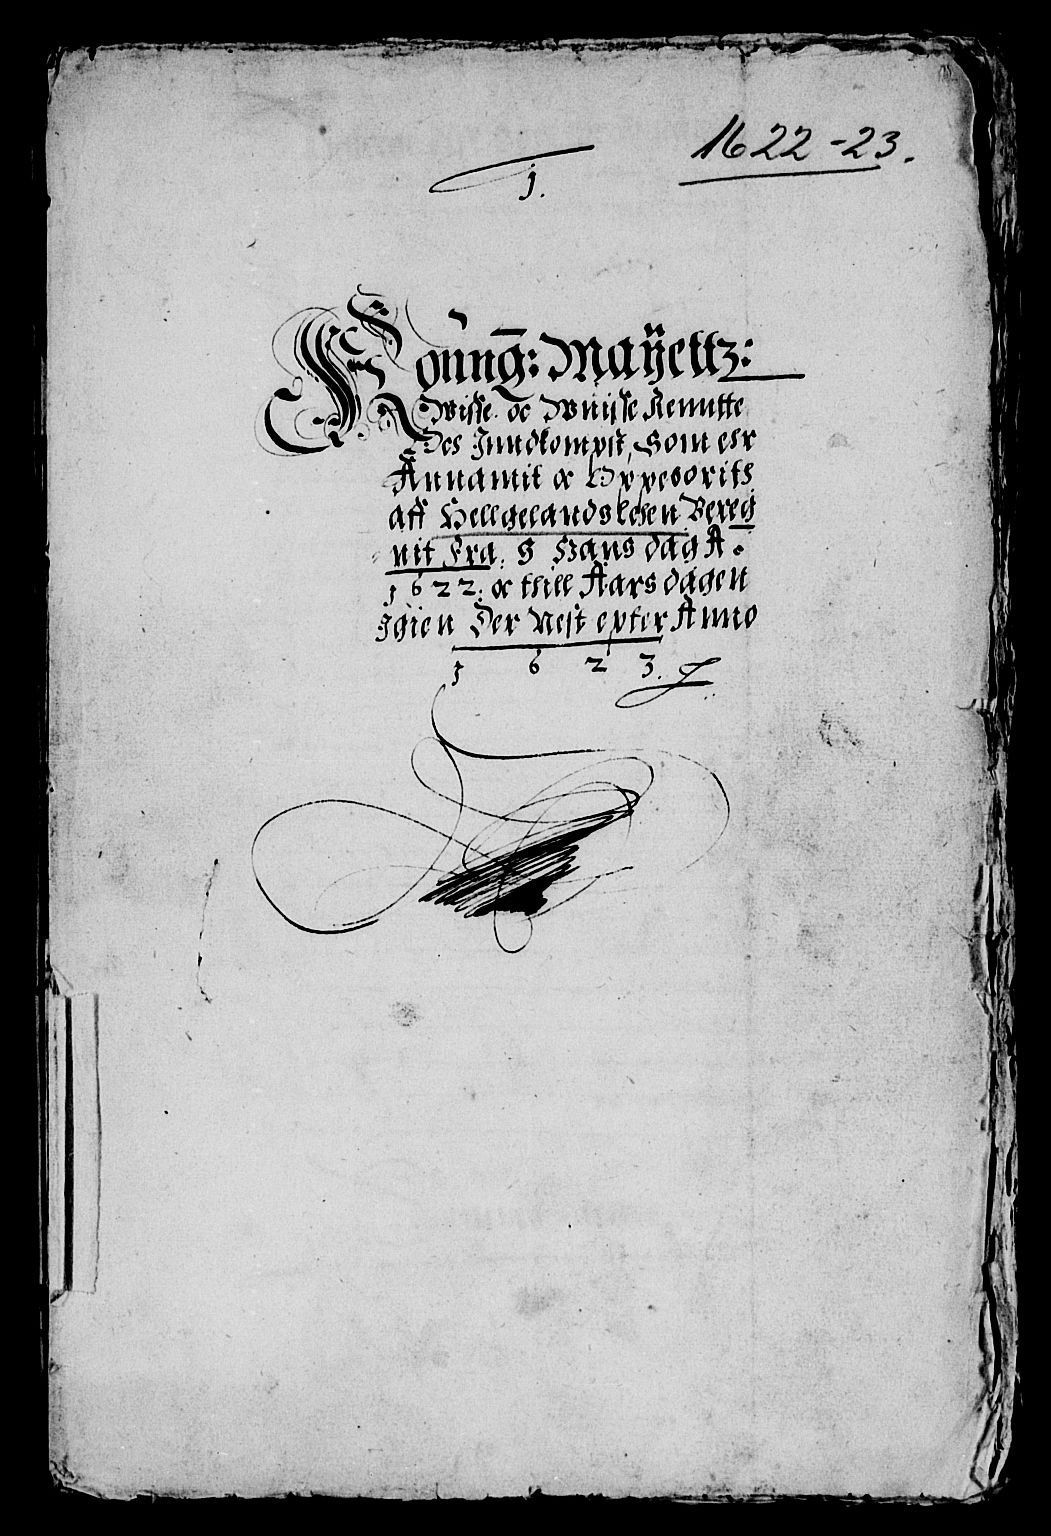 1622-23.
1.
Koning: Mayettz:
Wisse oc Wuisse Renntte
Des Inndkompst, Som ehr
Annamit oc Oppeborits
aff Hellgelands Lehen Bereg
nit Fra. S Hans dag A.
1622. oc thill Aarsdagen
Igien Der Nest epter Anno
1 6 2 3.